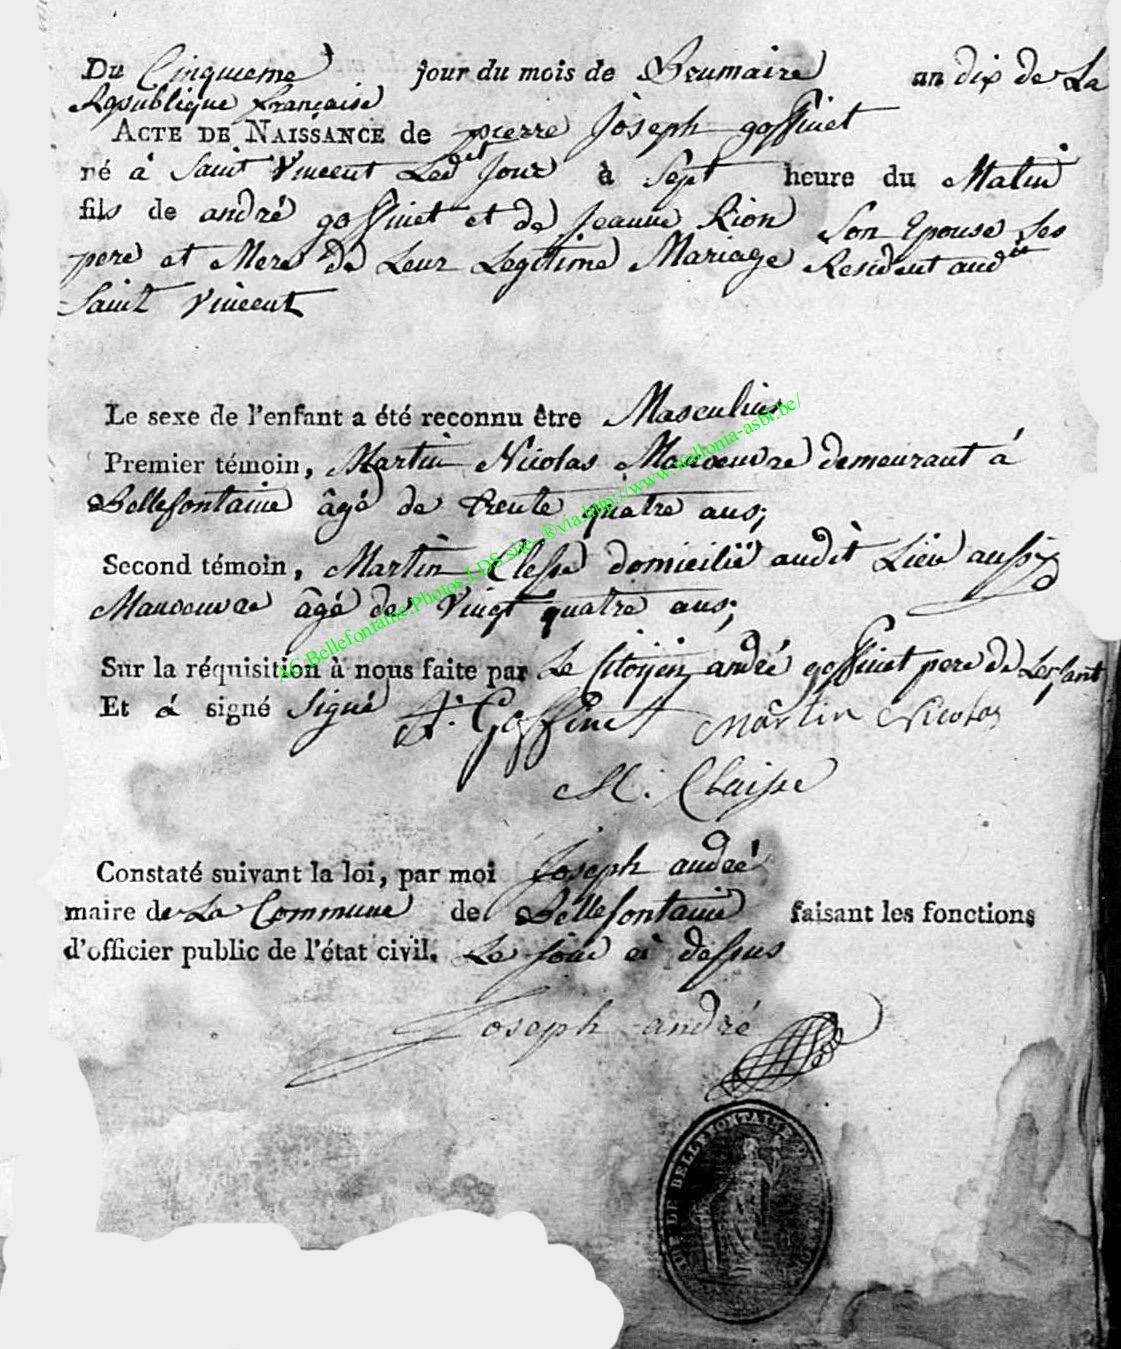 Du Cinquieme jour du mois de Brumaire an dix de La
Republique française
ACTE DE NAISSANCE de pierre Joseph goffinet
né à Saint Vincent Ledit Jour à Sept heure du Matin
fils de andré goffinet et de Jeanne Rion Son Epouse Ses
pere et Mere de Leur Legitime Mariage Resident audit
Saint Vincent
Le sexe de l'enfant a été reconnu être Masculin
Premier témoin, Martin Nicolas Manoeuvre demeurant á
Bellefontaine âgé de trente quatre ans;
Second témoin, Martin Clesse domicilié audit Lieu aussi
Manoeuvre âgé de Vingt quatre ans;
Sur la réquisition à nous faite par Le Citoyen andré goffinet pere de Lenfant
Et á signé Signé A. Goffinet Martin Nicolas
M. Claisse
Constaté suivant la loi, par moi Joseph andré
maire de La Commune de Bellefontaine faisant les fonctions
d'officier public de l'état civil. Le jour ci dessus
Joseph andré
DE BELLEFONTAINE
AC Bellefontaine.Photos LDS site-®via.http://www.wallonia-asbl.be/